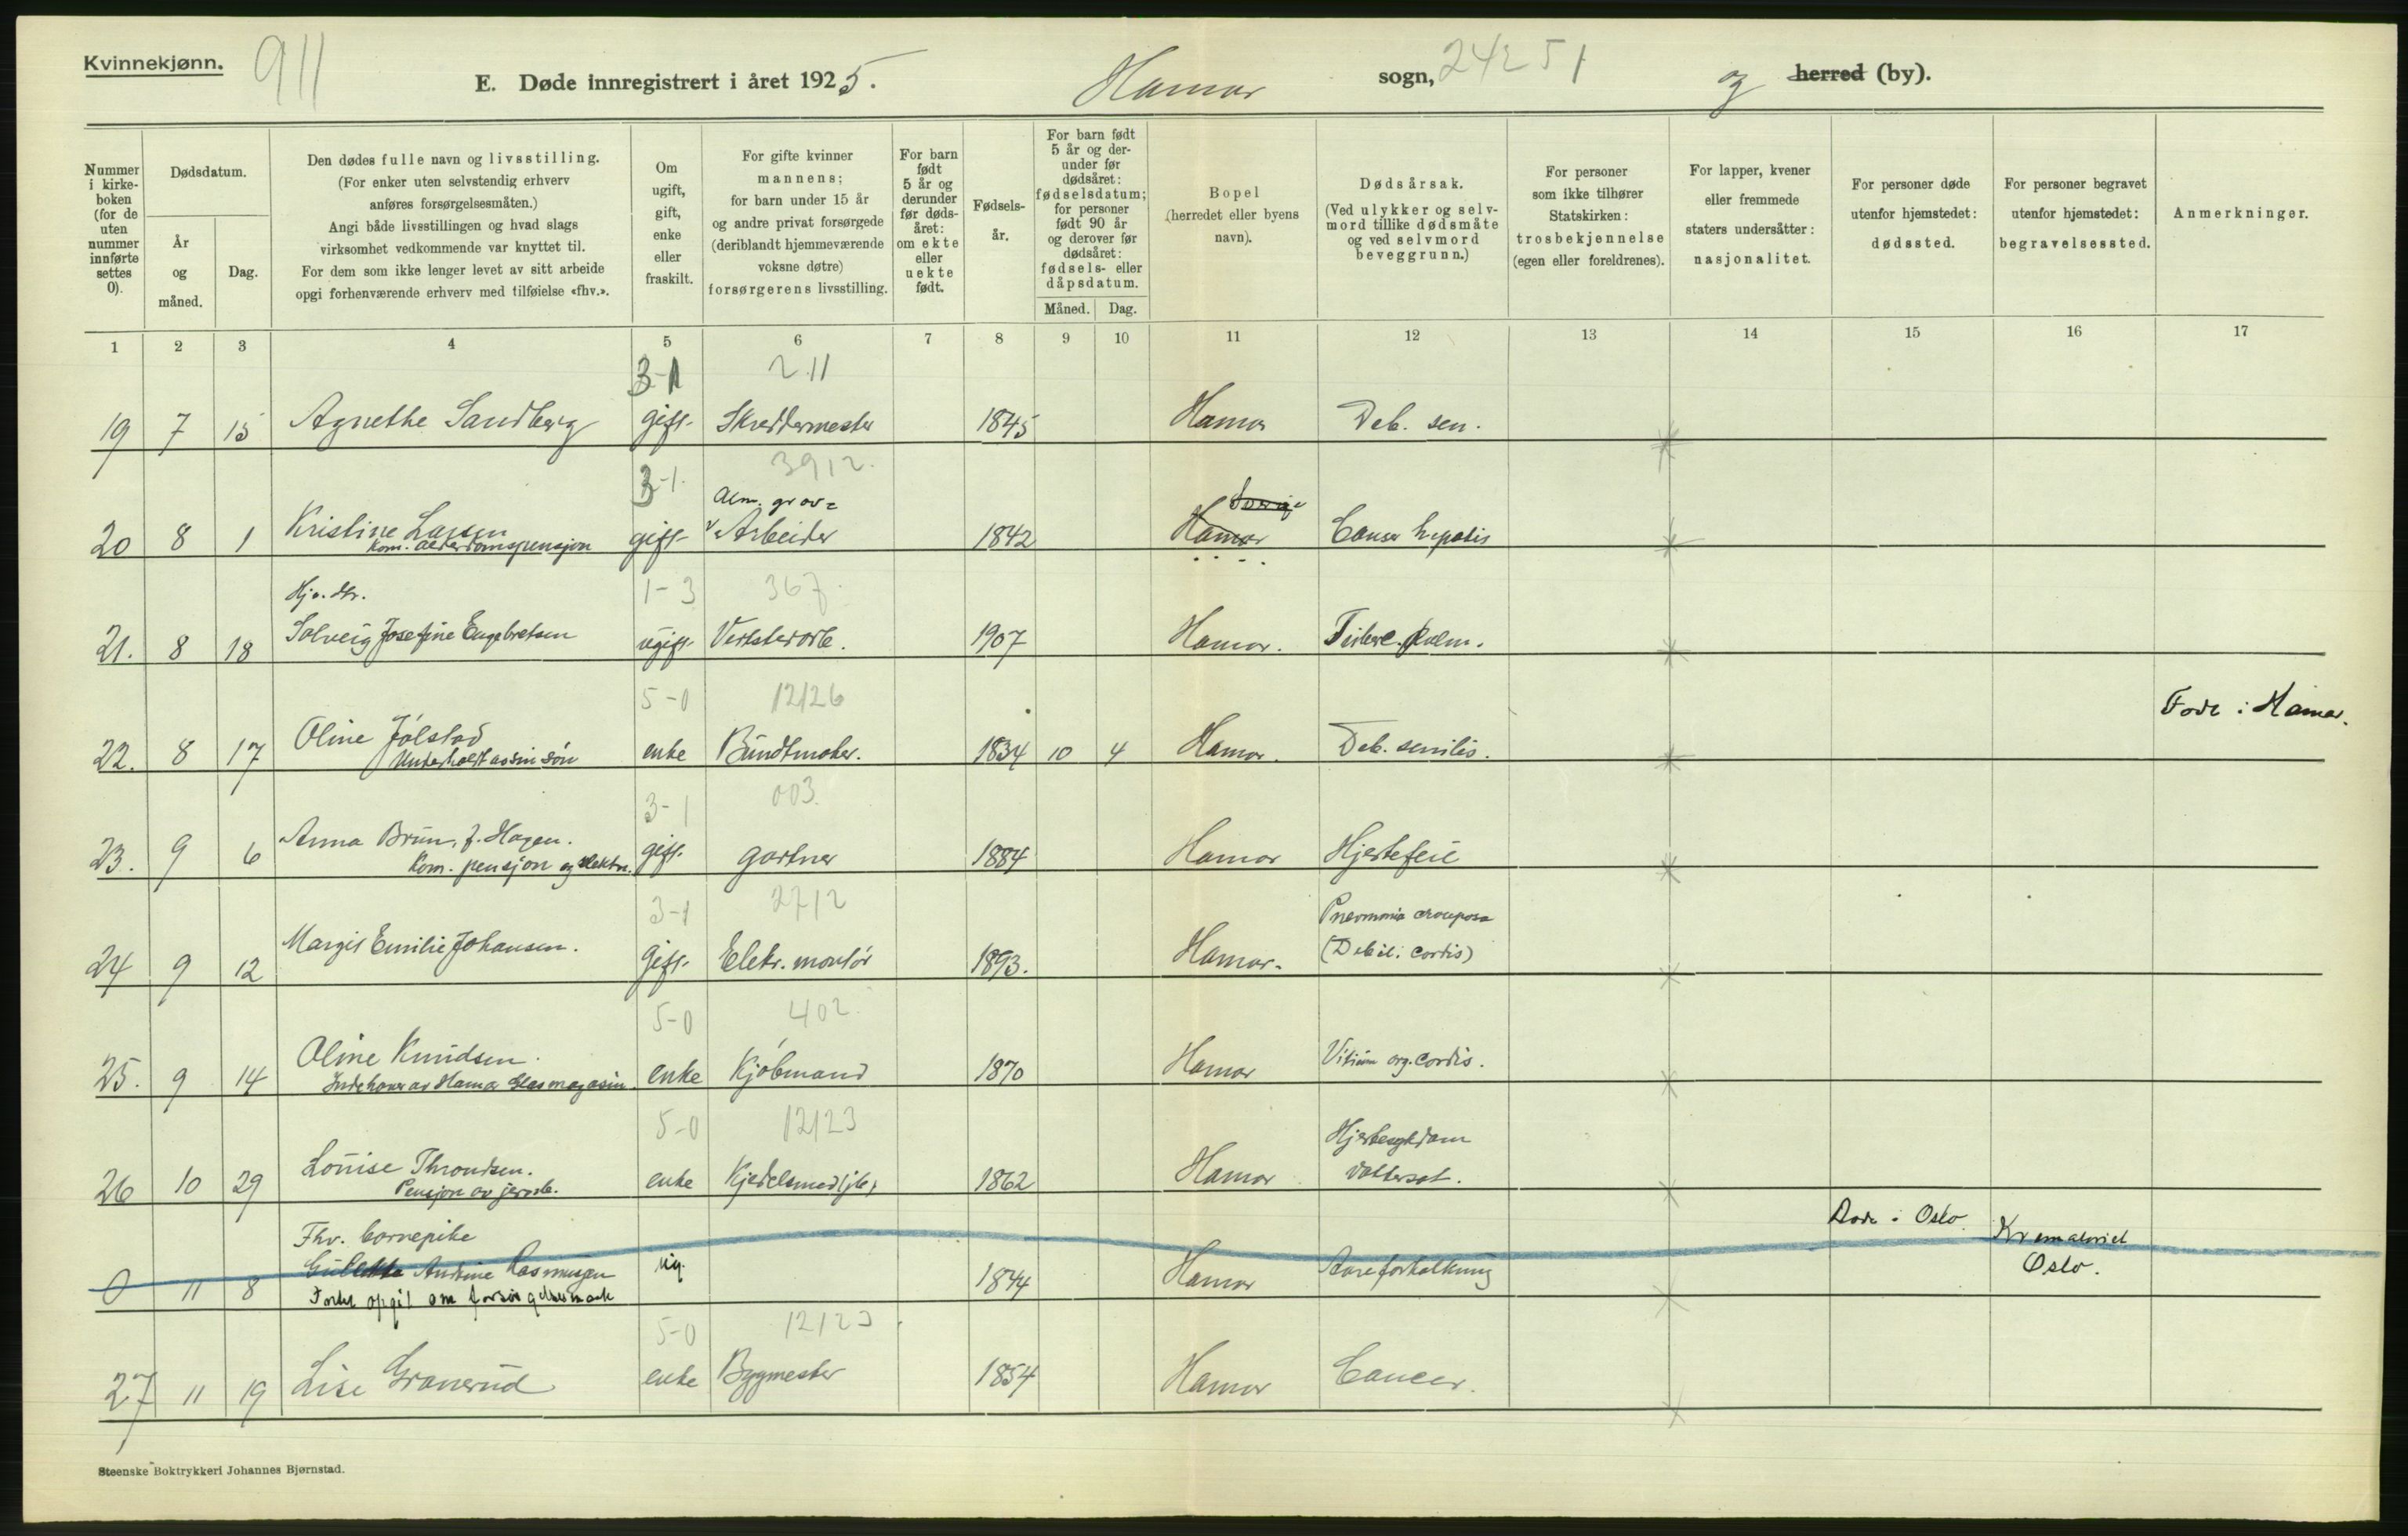 Kvinnekjønn.
911
E. Døde innregistrert i året 1925.
Hamar
sogn,
24251
og herred (by).
Nummer i kirke-boken (for de uten nummer innførte settes 0).
Dødsdatum.
År og måned.
Dag.
Den dødes fulle navn og livsstilling.
(For enker uten selvstendig erhverv
anføres forsørgelsesmåten.)
Angi både livsstillingen og hvad slags
virksomhet vedkommende var knyttet til.
For dem som ikke lenger levet av sitt arbeide
opgi forhenværende erhverv med tilføielse «fhv.».
Om ugift, gift, enke eller fraskilt.
For gifte kvinner
mannens;
for barn under 15 år
og andre privat forsørgede
(deriblandt hjemmeværende
voksne døtre)
forsørgerens livsstilling.
For barn født 5 år og derunder før døds-året: om ekte eller uekte født.
Fødsels-år.
For barn født 5 år og der-under før dødsåret: fødselsdatum; for personer født 90 år og derover før dødsåret: fødsels- eller dåpsdatum.
Måned.
Dag.
Bopel
(herredet eller byens
navn).
Dødsårsak.
(Ved ulykker og selv-
mord tillike dødsmåte
og ved selvmord
beveggrunn.)
For personer
som ikke tilhører
Statskirken:
trosbekjennelse
(egen eller foreldrenes).
For lapper, kvener
eller fremmede
staters undersåtter:
nasjonalitet.
For personer døde
utenfor hjemstedet:
dødssted.
For personer begravet
utenfor hjemstedet:
begravelsessted.
Anmerkninger.
1 2 3 4 5 6 7 8 9 10 11 12 13 14 15 16 17
3-1 211
19 7 15 Agnethe Sandberg gift Skreddermester 1845 Hamar Deb. sen.
3-1 3912
Alm. grov=
20 8 1 Kristine Larsen gift Arbeider 1842 Hamar Cancer hepatis
Kom. alderdomspensjon
Hjv. dtr. 1-3 367
21. 8 18 Solveig Josefine Engebretsen ugift Verkstedarb. 1907 Hamar. Tuberc. pulm.
5-0 12126
Født i Hamar.
22. 8 17 Oline Jølstad enke Bundtmaker. 1834 10 4 Hamar. Deb. senilis.
Underholdt av sin søn
3-1 003.
23. 9 6 Anna Brun, f. Hagen. gift gartner 1884 Hamar Hjertefeil
Kom. pensjon og
3-1 2712
Pneumonia crouposa
24 9 12 Margit Emilie Johansen. Gift Elektr. montør 1893. Hamar. (Debil. cordis)
5-0 402
25. 9 14 Oline Knudsen. enke Kjøbmand 1870 Hamar Vitium org. cordis.
Indehaver av Hamar Glasmagasin
5-0 12123
Hjertesykdom
26 10 29 Louise Throndsen. enke Kjedelsmed (jb.) 1862 Hamar Vattersot.
Pensjon av jernb.
Død i Oslo. Krematoriet
Oslo.
Fhv. barnepike
0 11 8 Andrine Rasmussen ug. 1844 Hamar Aareforkalkning
5-0 12123
27 11 19 Lise Granerud enke Bygmester 1854 Hamar Cancer.
Steenske Boktrykkeri Johannes Bjørnstad.